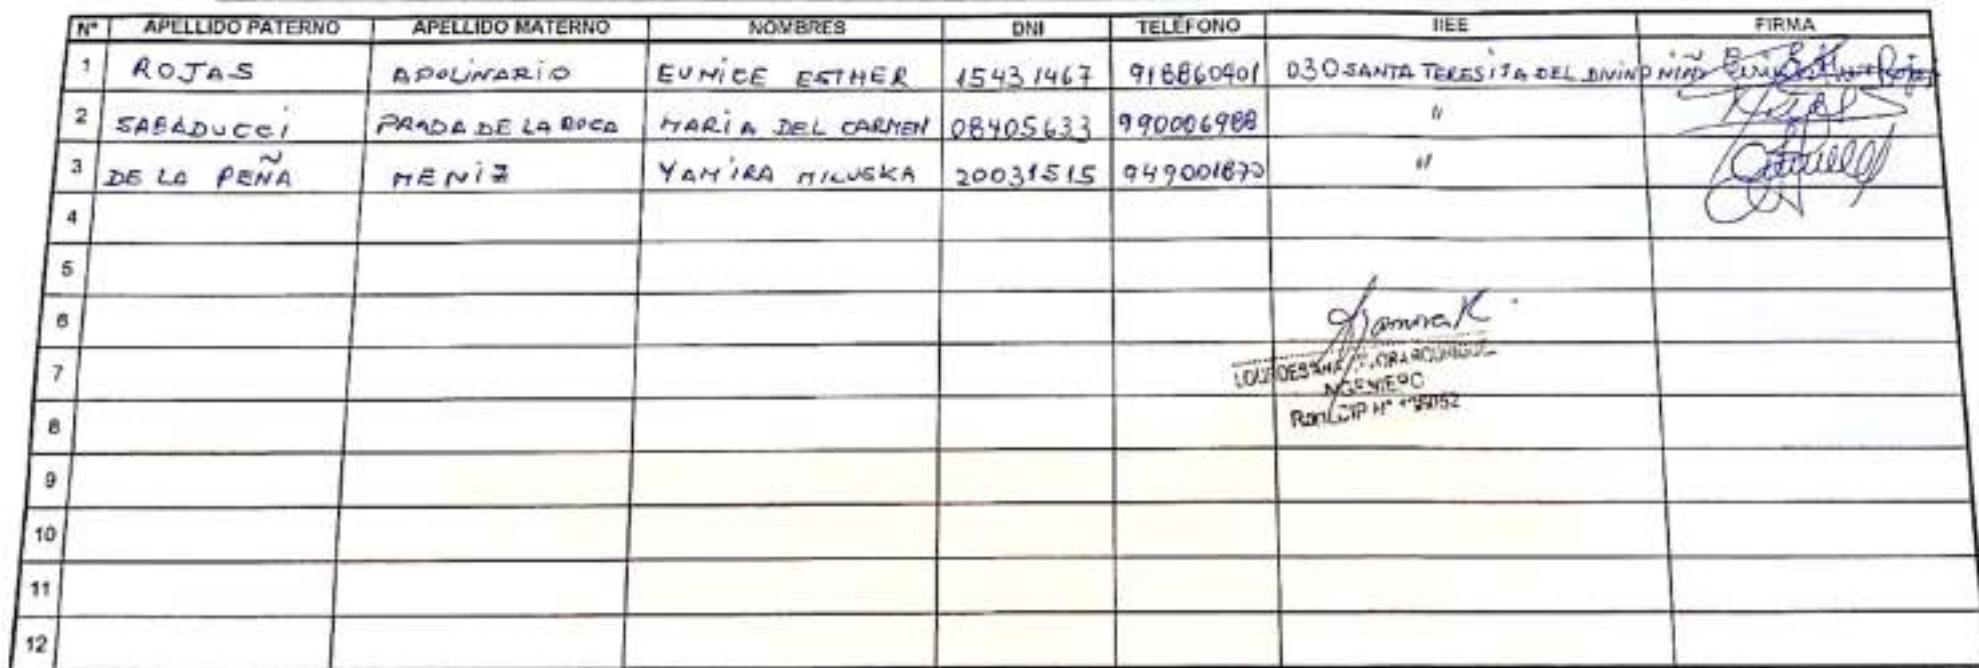 N° APELLIDO PATERNO APELLIDO MATERNO NOMBRES DNI TELÉFONO IIEE FIRMA
1 ROJAS APOLINARIO EUNICE ESTHER 15431467 918860401 030 SANTA TERESITA DEL DIVINO NIÑO
2 SABADUCCI PRADA DE LA ROCA MARIA DEL CARMEN 08405633 990006988 "
3 DE LA PEÑA MENIZ YAMIRA MILUSKA 20031515 949001873 "
4
5
6
7
INGENIERO
8
9
10
11
12